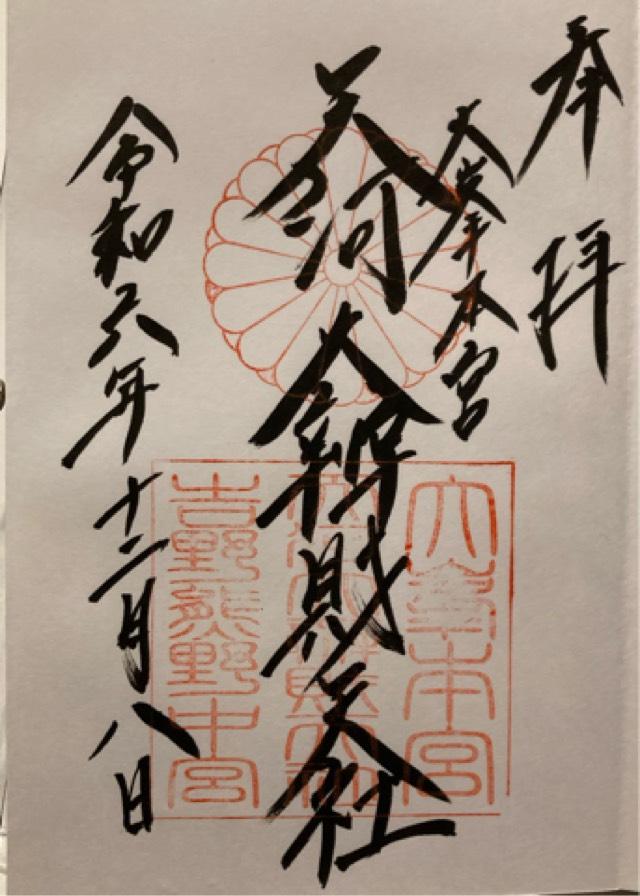 奉拝
大峯本宮
天河大辨財天社
令和六年十二月八日
大峯本宮
天河大辨財天社
吉野熊野中宮